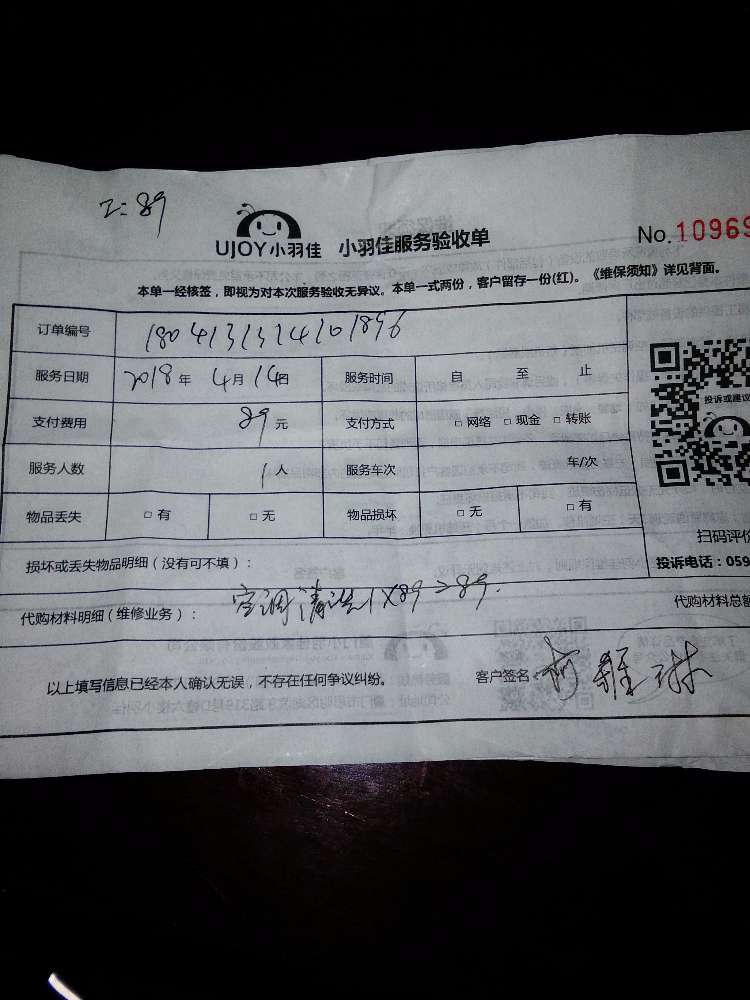 工:89
UJOY小羽佳 小羽佳服务验收单
No.10969
本单一经核签，即视为对本次服务验收无异议。本单一式两份，客户留存一份(红)。《维保须知》详见背面。
订单编号 1804131314101896
服务日期 2018年 4月14日 服务时间 自 至 止
投诉或建议
支付费用 89元 支付方式 □网络 □现金 □转账
服务人数 1人 服务车次 车/次
物品丢失 □有 □无 物品损坏 □无 □有
扫码评价
损坏或丢失物品明细（没有可不填）：
投诉电话：059
代购材料明细（维修业务）： 空调清洗1X89=89.
代购材料总额
以上填写信息已经本人确认无误，不存在任何争议纠纷。 客户签名：